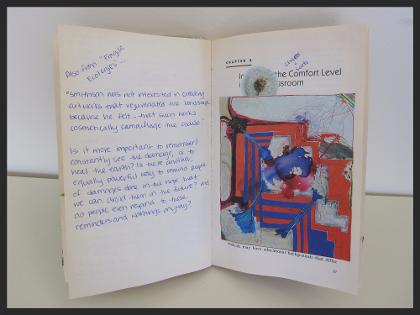 Also from "Fragile
Ecologies"...
"Smithson was not interested in creating
artworks that rejuvenated the landscape
because he felt... that such works
cosmetically camouflage the abuse."
Is it more important to remember/
constantly see the damage, or to
heal the earth? Is there another,
equally powerful way to remind people
of damages done in the hope that
we can avoid them in the future? Do
people even respond to these
reminders and warnings anyway?
CHAPTER
the Comfort Level
ssroom